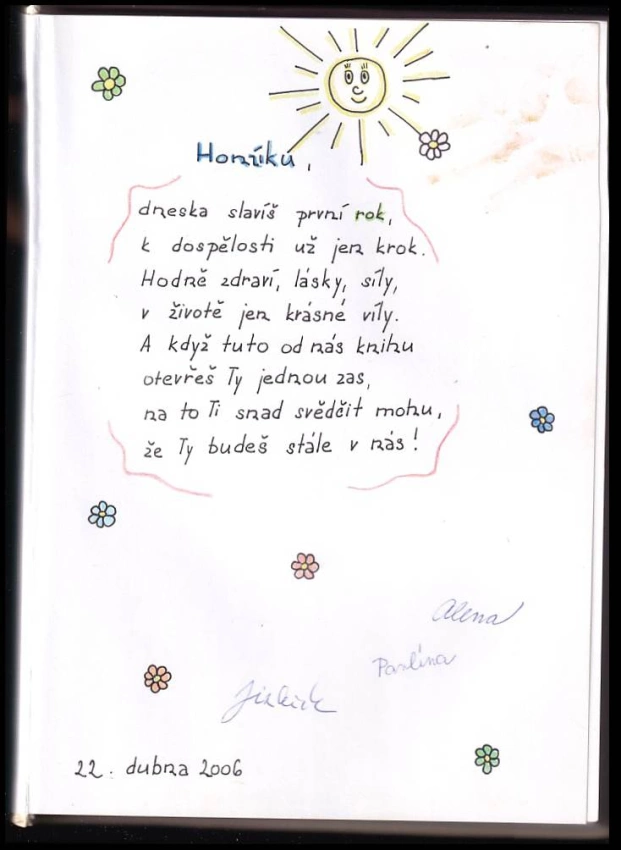 Honzíku,
dneska slavíš první rok,
k dospělosti už jen krok.
Hodně zdraví, lásky, síly,
v životě jen krásné víly.
A když tuto od nás knihu
otevřeš Ty jednou zas,
na to Ti snad svědčit mohu,
že Ty budeš stále v nás!
Alena
Pavlína
22. dubna 2006